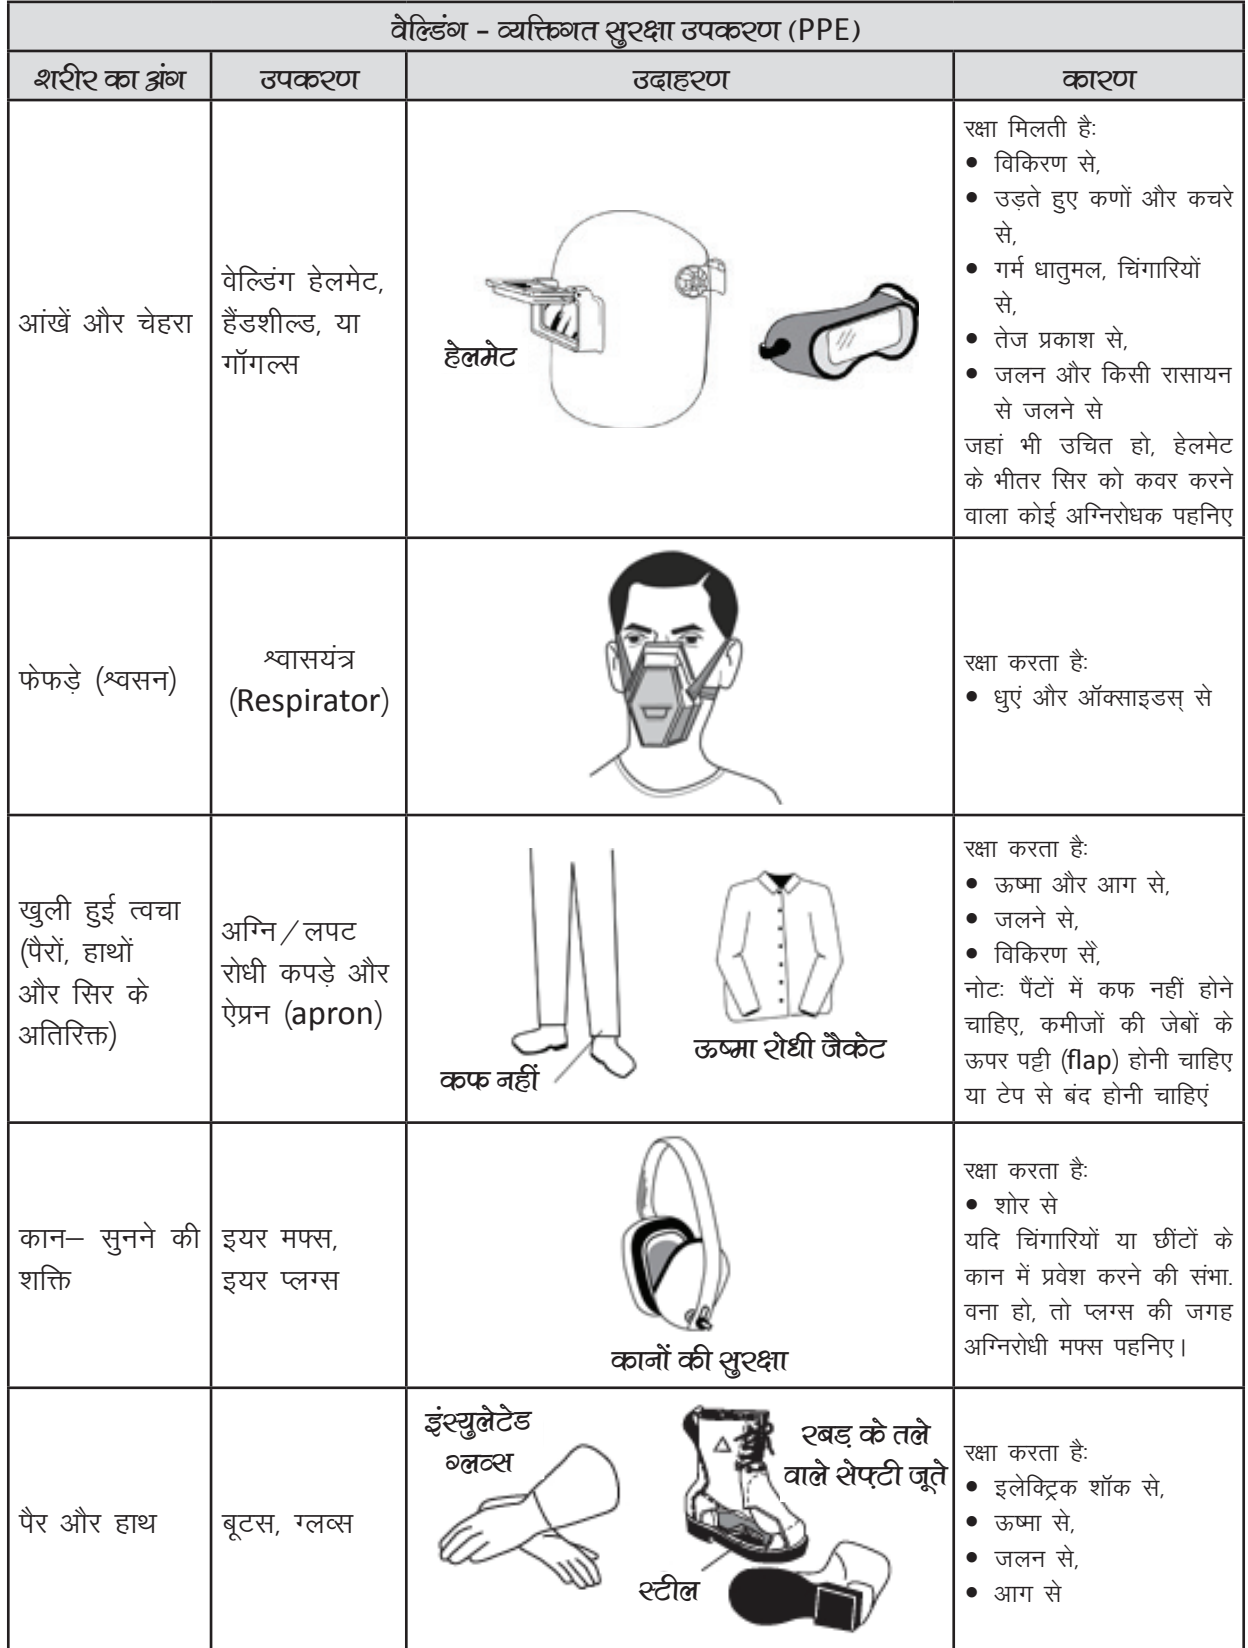 वेल्डिंग - व्यक्तिगत सुरक्षा उपकरण (PPE)
शरीर का अंग
उपकरण
उदाहरण
कारण
आंखें और चेहरा
वेल्डिंग हेलमेट,
हैंडशील्ड, या
गॉगल्स
हेलमेट
रक्षा मिलती है:
• विकिरण से,
• उड़ते हुए कणों और कचरे
से,
• गर्म धातुमल, चिंगारियों
से,
• तेज प्रकाश से,
• जलन और किसी रासायन
से जलने से
जहां भी उचित हो, हेलमेट
के भीतर सिर को कवर करने
वाला कोई अग्निरोधक पहनिए
फेफड़े (श्वसन)
श्वासयंत्र
(Respirator)
रक्षा करता है:
• धुएं और ऑक्साइडस् से
खुली हुई त्वचा
(पैरों, हाथों
और सिर के
अतिरिक्त)
अग्नि/लपट
रोधी कपड़े और
ऐप्रन (apron)
कफ नहीं
ऊष्मा रोधी जैकेट
रक्षा करता है:
• ऊष्मा और आग से,
• जलने से,
• विकिरण सेे,
नोट: पैंटों में कफ नहीं होने
चाहिए, कमीजों की जेबों के
ऊपर पट्टी (flap) होनी चाहिए
या टेप से बंद होनी चाहिएं
कान– सुनने की
शक्ति
इयर मफ्स,
इयर प्लग्स
कानों की सुरक्षा
रक्षा करता है:
• शोर से
यदि चिंगारियों या छींटों के
कान में प्रवेश करने की संभा.
वना हो, तो प्लग्स की जगह
अग्निरोधी मफ्स पहनिए।
पैर और हाथ
बूटस, ग्लव्स
इंस्युलेटेड
ग्लव्स
रबड़ के तले
वाले सेफ्टी जूते
स्टील
रक्षा करता है:
• इलेक्ट्रिक शॉक से,
• ऊष्मा से,
• जलन से,
• आग से